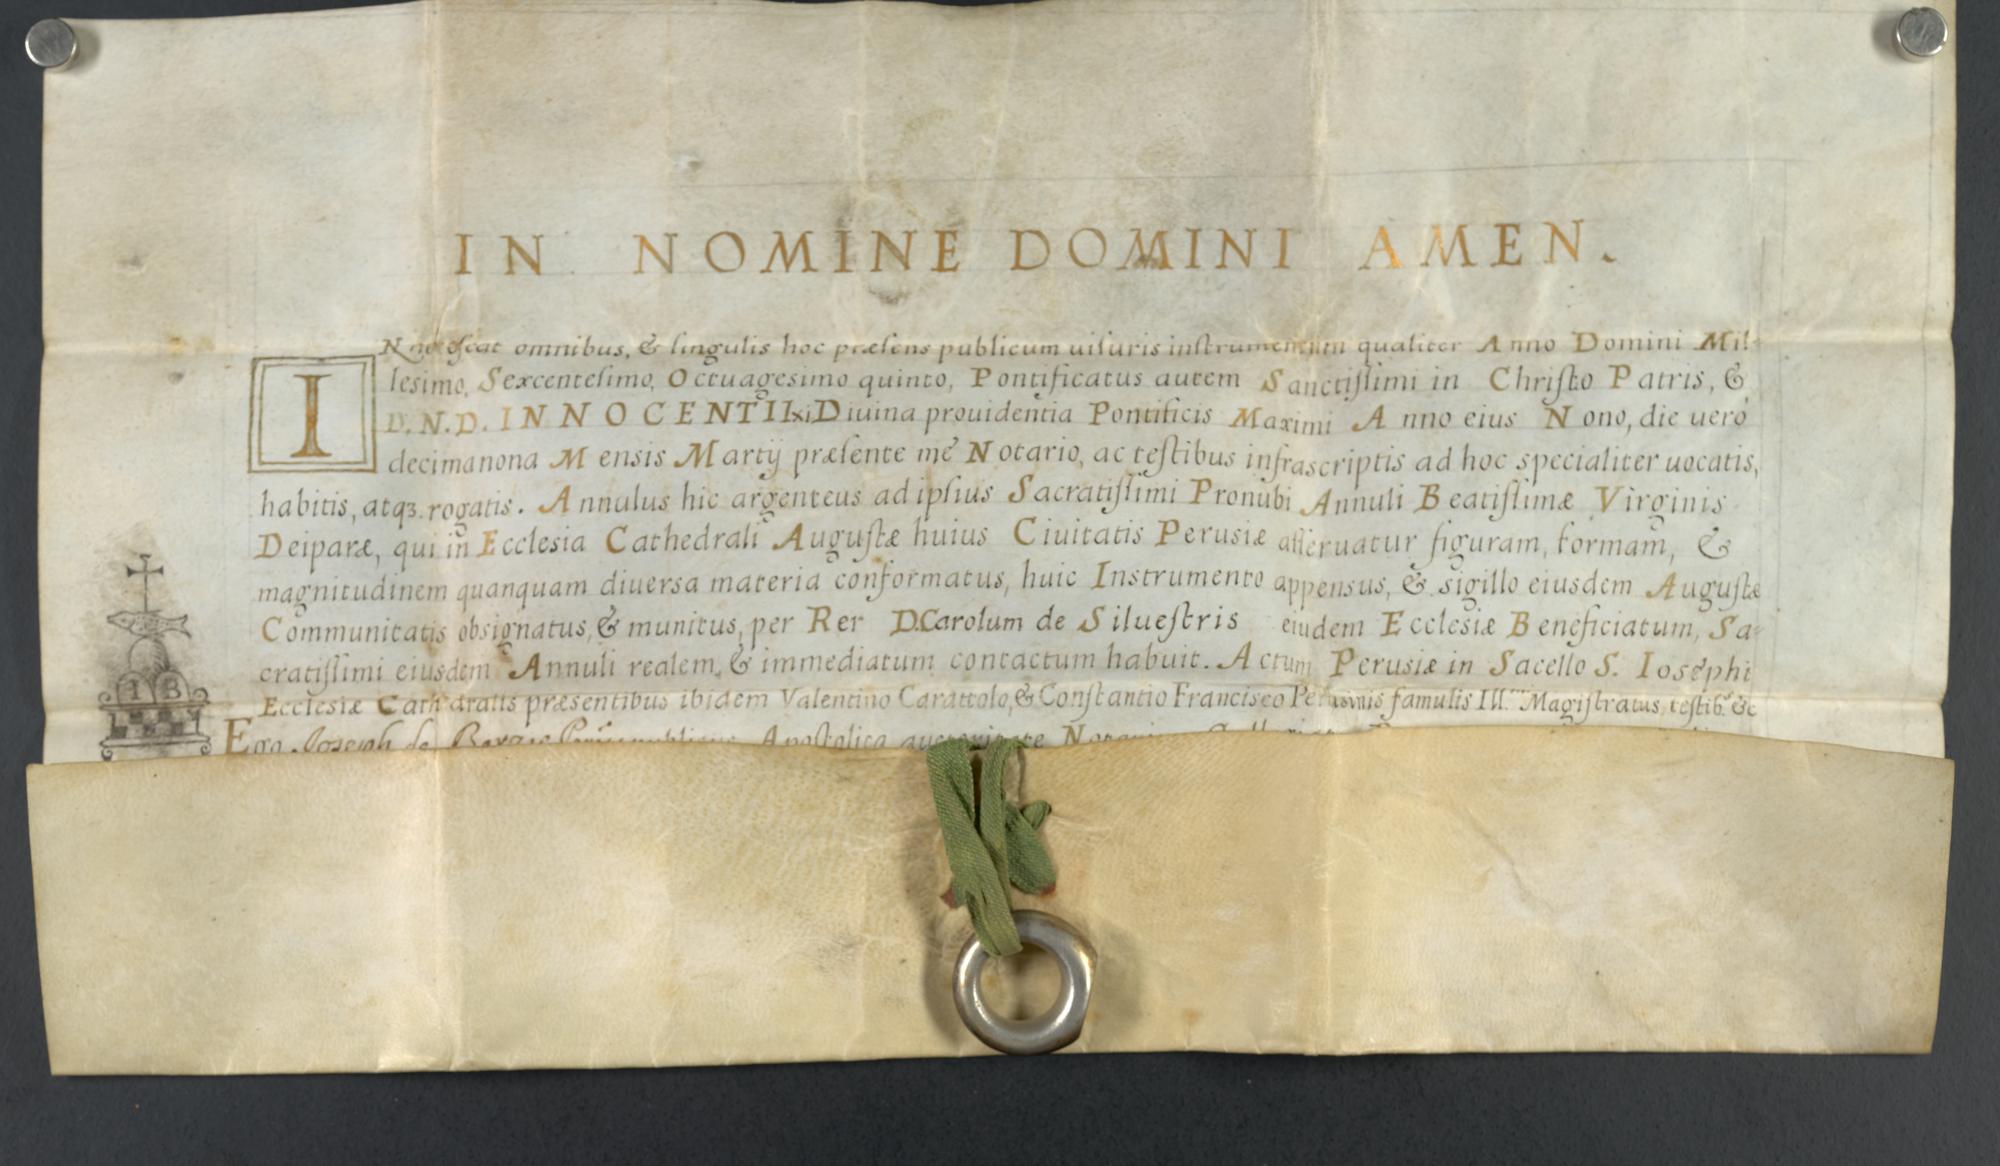 IN NOMINE DOMINI AMEN.
INnotescat omnibus, & singulis hoc præsens publicum uisuris instrumentum qualiter Anno Domini Mil-
lesimo, Sexcentesimo, Octuagesimo quinto, Pontificatus autem Sanctissimi in Christo Patris, &
D.N.D. INNOCENTII xi Diuina prouidentia Pontificis Maximi Anno eius Nono, die uerò
decimanona Mensis Martij præsente mé Notario, ac testibus infrascriptis ad hoc specialiter uocatis,
habitis, atqз rogatis. Annulus hic argenteus ad ipsius Sacratissimi Pronubi Annuli Beatissimæ Virginis
Deiparæ, qui in Ecclesia Cathedrali Augustæ huius Ciuitatis Perusiæ asseruatur figuram, formam, &
magnitudinem quanquam diuersa materia conformatus, huic Instrumento appensus, & sigillo eiusdem Augustæ
Communitatis obsignatus, & munitus, per Rer D.Carolum de Siluestris eiudem Ecclesiæ Beneficiatum, Sa-
cratissimi eiusdem Annuli realem, & immediatum contactum habuit. Actum Perusiæ in Sacello S. Iosephi
Ecclesiæ Cathedralis præsentibus ibidem Valentino Carattolo, & Constantio Francisco Perusinis famulis Ill.mi Magistratus, testib. &c
IB
Ego Joseph de publicus Apostolica auctoritate